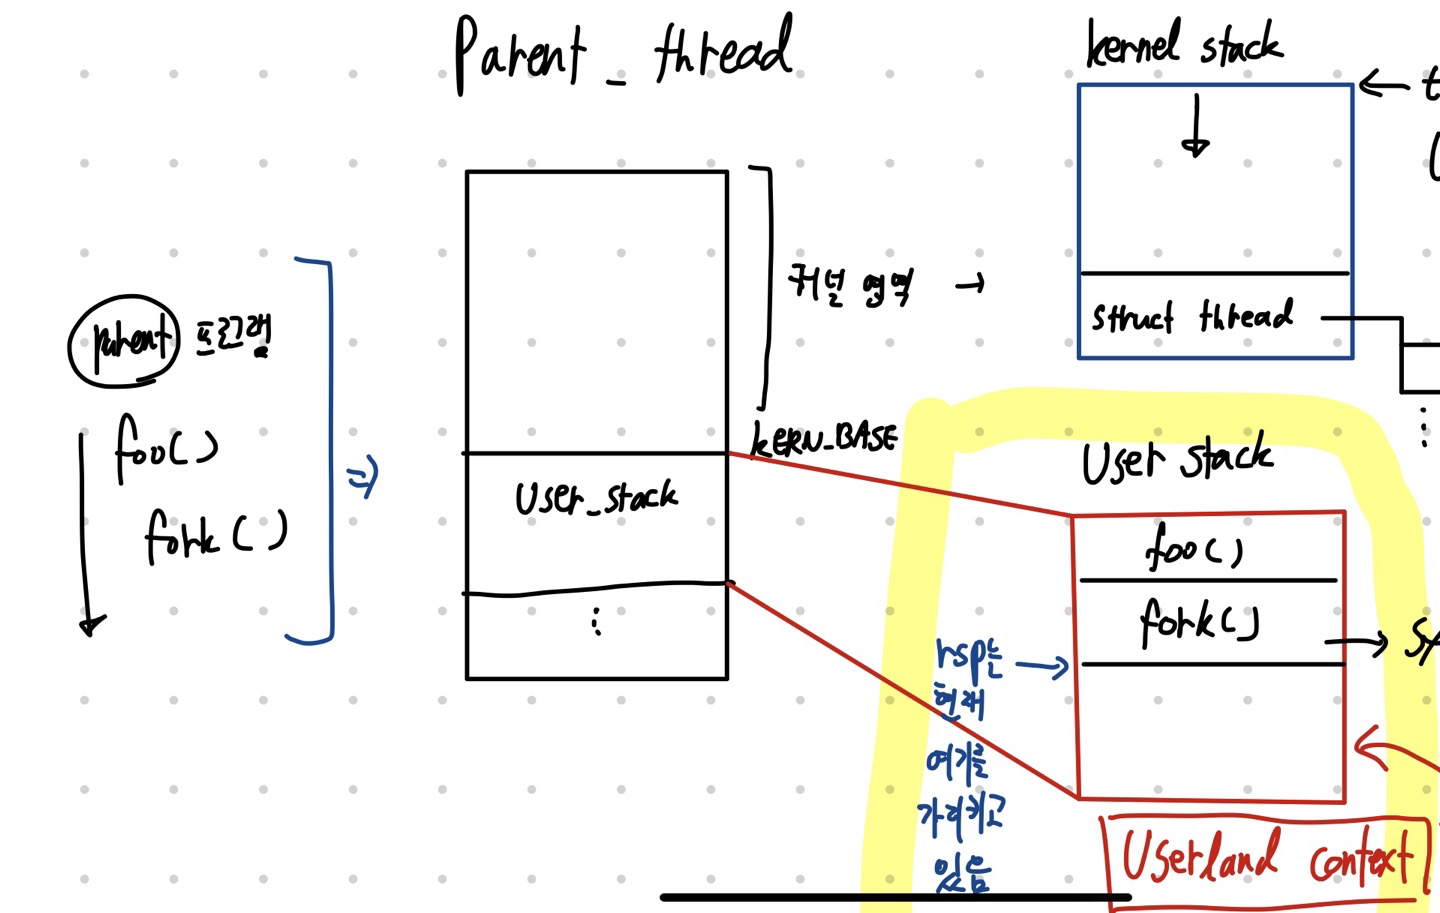 Parent_thread
parent 프로그램
foo()
fork()
User_stack
커널 영역
KERN_BASE
kernel stack
struct thread
User stack
foo()
fork()
rsp는
현재
여기를
가리키고
있음
Userland context